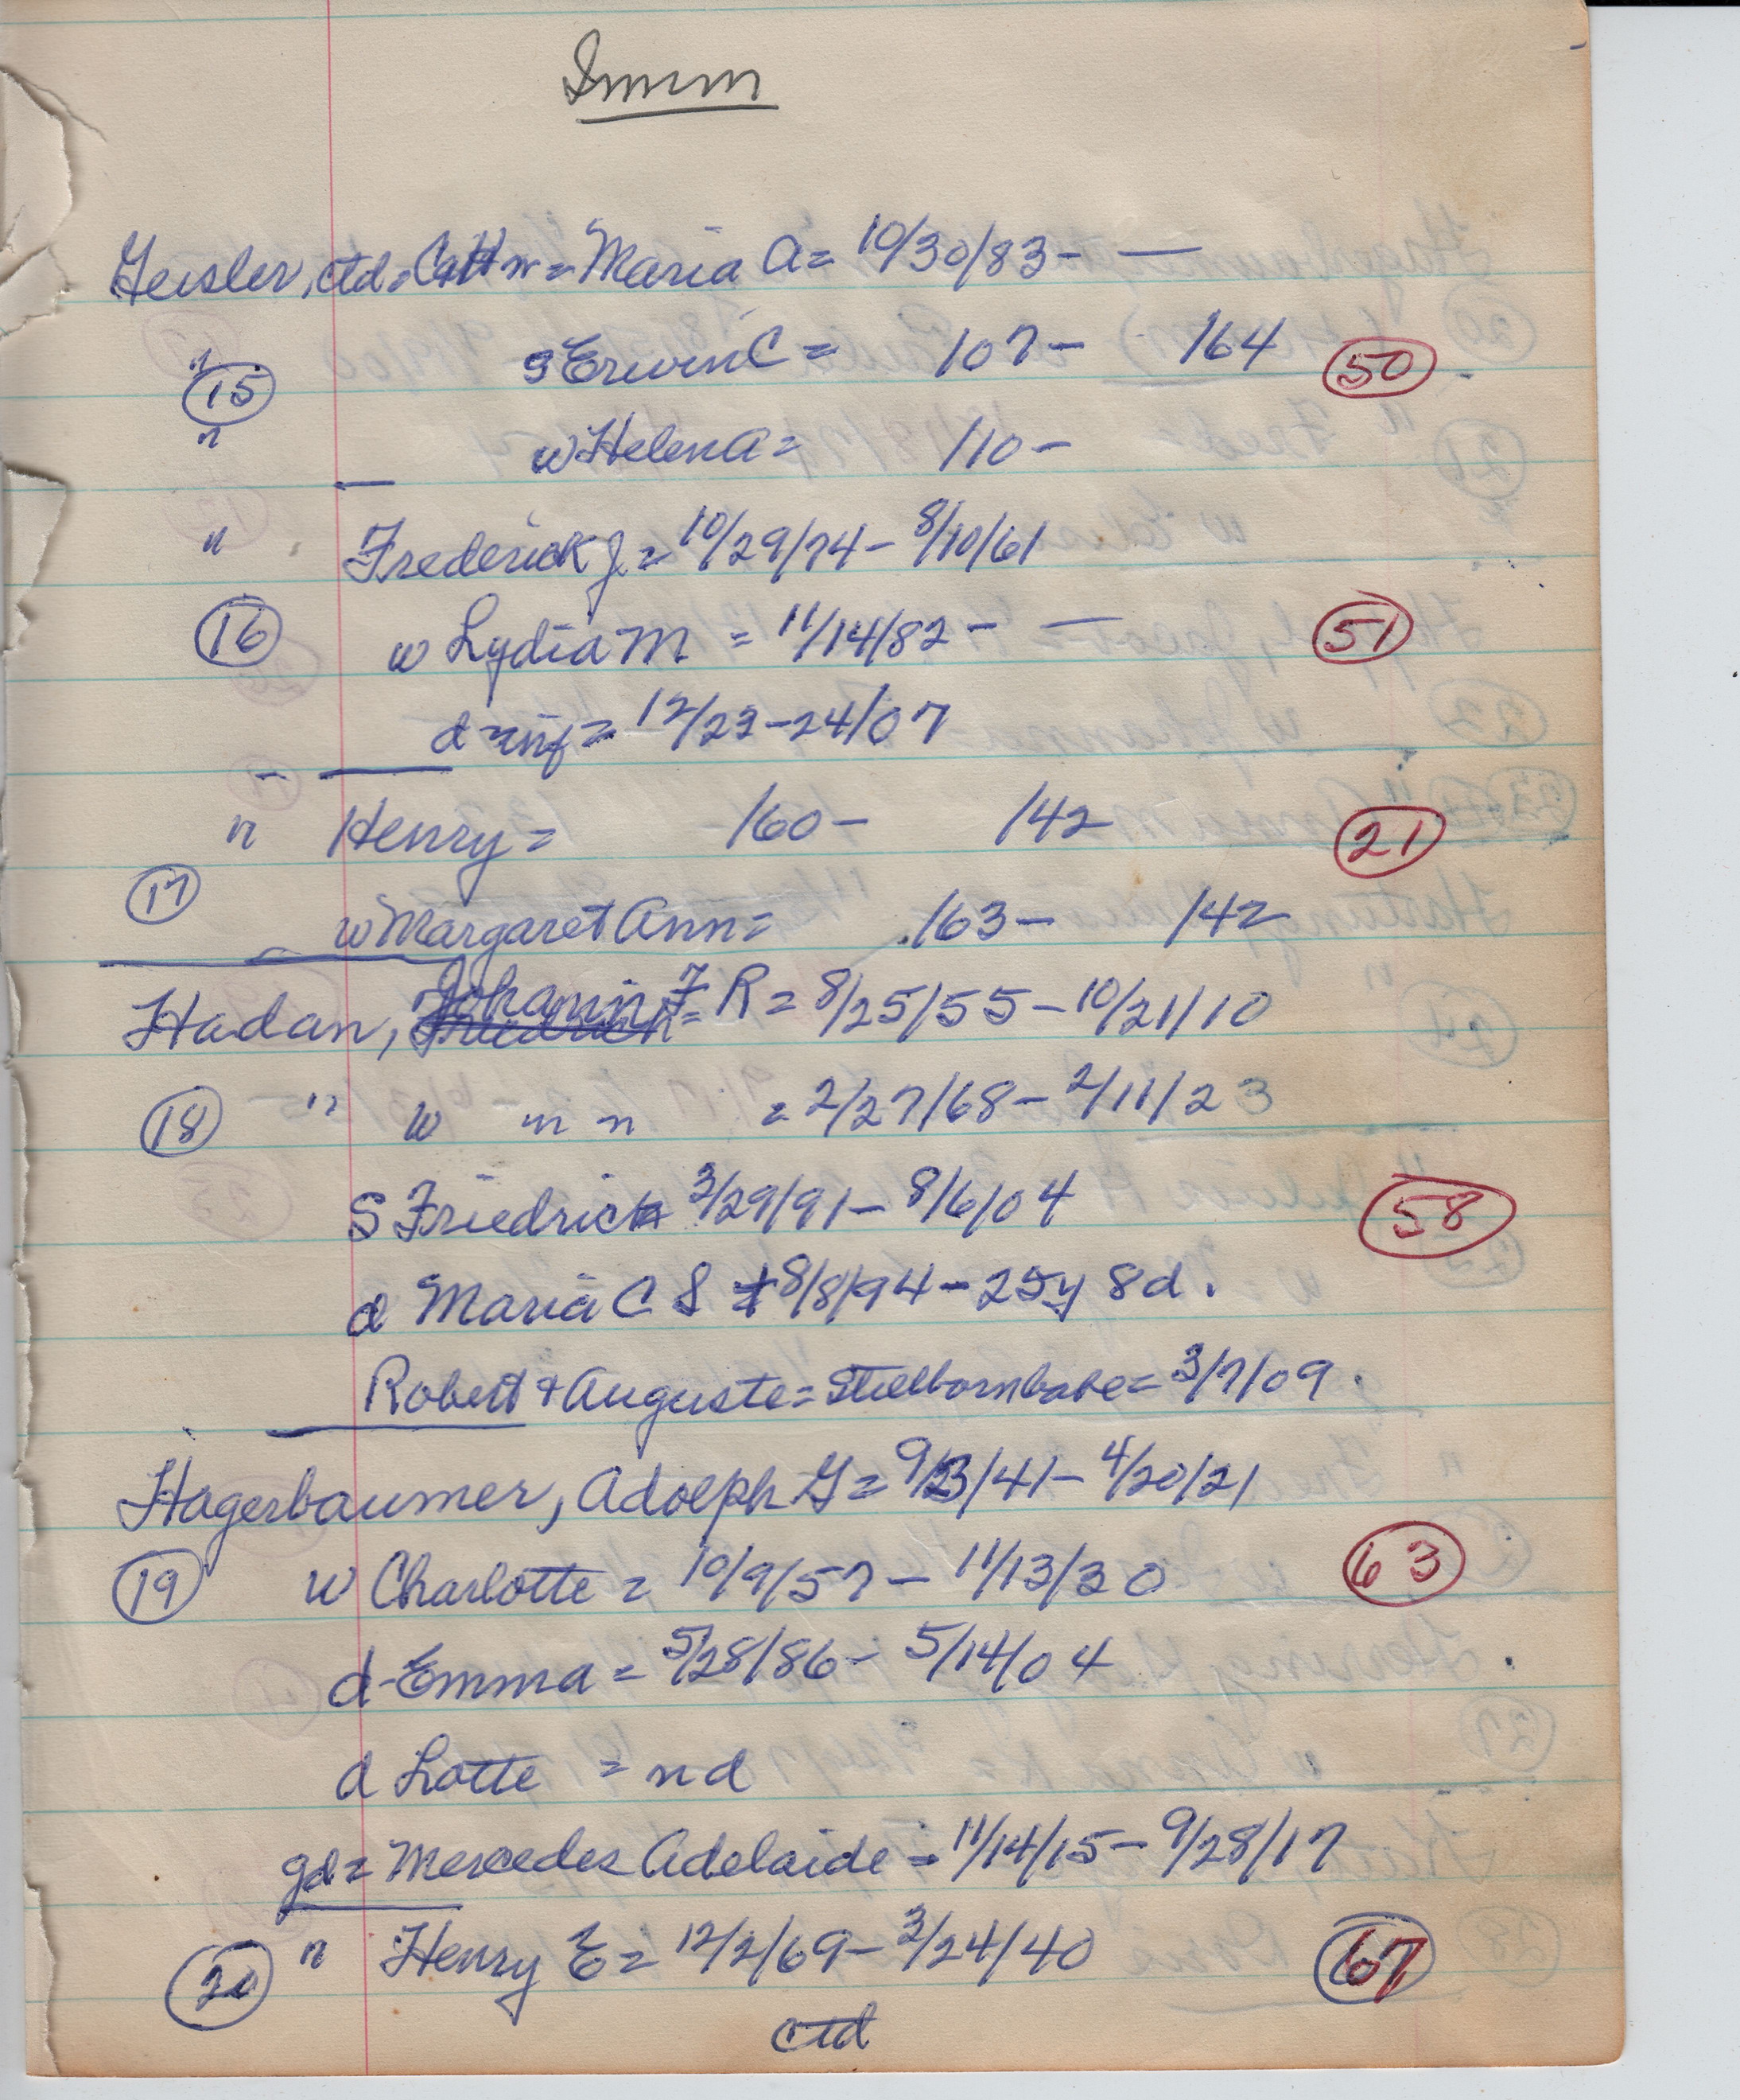 Imm
Geisler, ctd = w = Maria A = 10/30/83 - —
" s Erwin C = /07 - /64 (50)
(15)
" w Helen A = /10 -
" Frederick J = 10/29/74 - 8/10/61
(16) w Lydia M = 11/14/82 - — (51)
d inf = 12/23-24/07
" Henry = /60 - /42 (21)
(17)
w Margaret Ann = /63 - /42
Hadan, Johann F R = 8/25/55 - 10/21/10
(18) " w m n = 2/27/68 - 2/11/23
S Friedrich 3/29/91 - 8/6/04 (58)
d Maria C S 8/8/94 - 25y 8d.
Robert + Auguste = Stillbornbabe = 3/7/09.
Hagerbaumer, Adolph G = 9/23/41 - 4/20/21
(19) w Charlotte = 10/9/57 - 11/13/30 (63)
d-Emma = 5/28/86 - 5/14/04
d Lotte = nd
gd = Mercedes Adelaide = 11/14/15 - 9/28/17
(20) " Henry E = 12/2/69 - 3/24/40 (67)
ctd